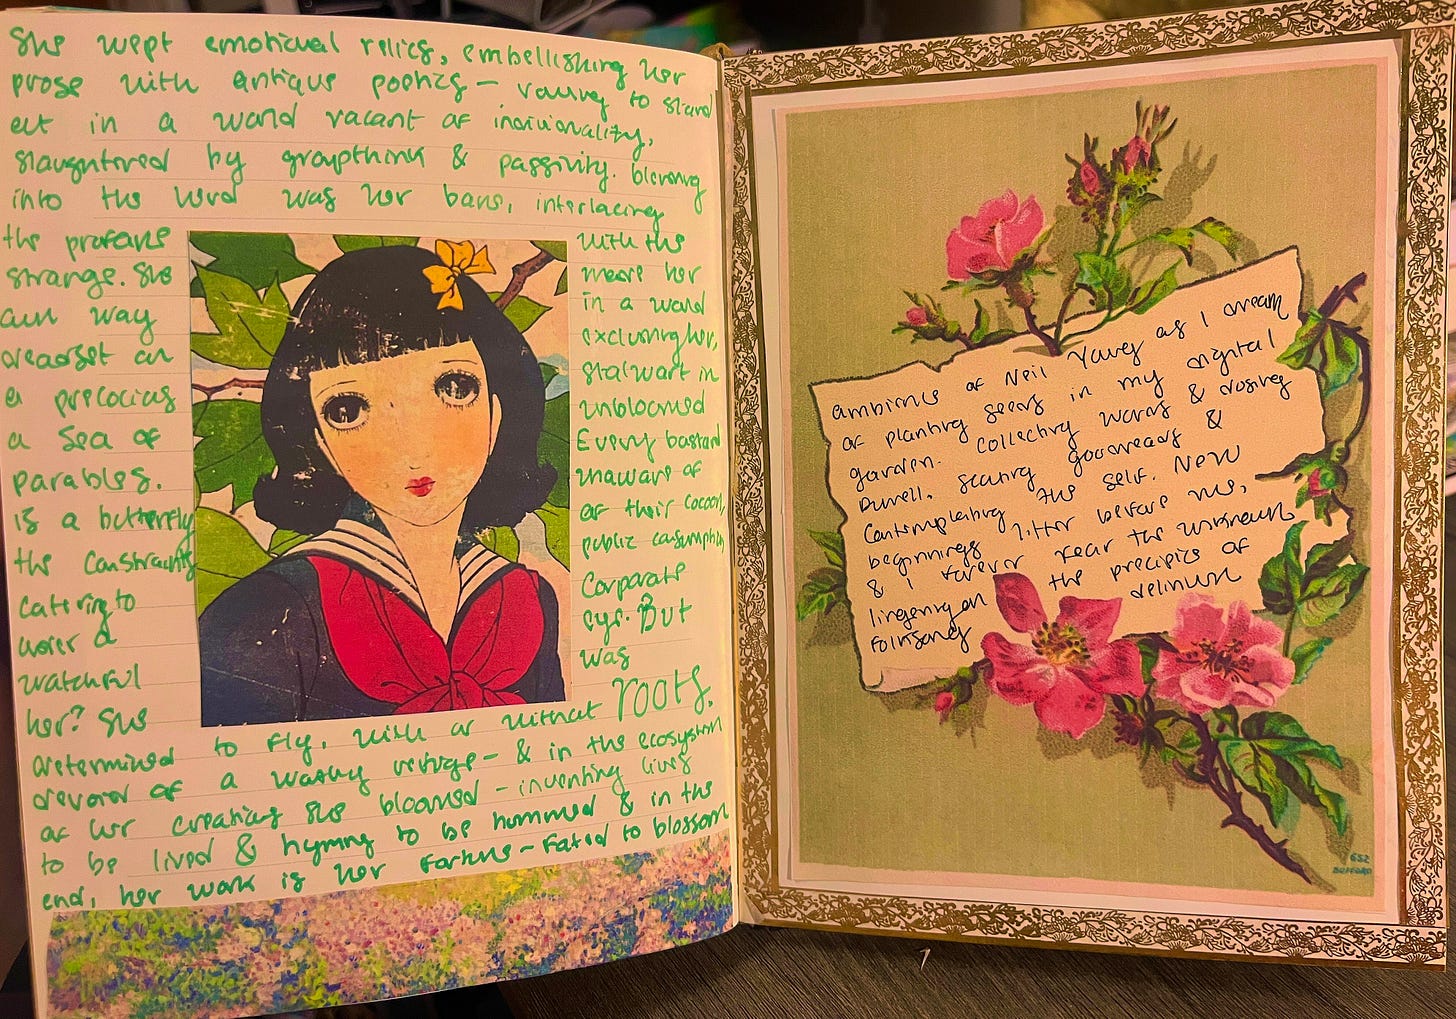 She wept emotional relics, embellishing her
prose with antique poetics — vowing to stand
out in a world vacant of individuality,
slaughtered by groupthink & passivity. blending
into the herd was her bane, interlacing
the profane with the
strange. She made her
own way in a world
deadset on excluding her,
a precocious stalwart in
a sea of unbloomed
parables. Every bastard
is a butterfly unaware of
the constraints of their cocoon,
catering to public consumption
under a corporate
watchful eye. But
her? She was
determined to fly, with or without roots,
devoid of a refuge — & in the ecosystem
of her creating she bloomed — inventing lives
to be lived & hymns to be hummed & in the
end, her work is her fortune — fated to blossom
ambience of Neil Young as I dream
of planting seeds in my digital
garden. Collecting words &
Durrell. goodreads &
contemplating the self. New
beginnings litter before me,
& i forever fear the unknown
lingering on the precipice of
folksong delirium
652
BUFFORD